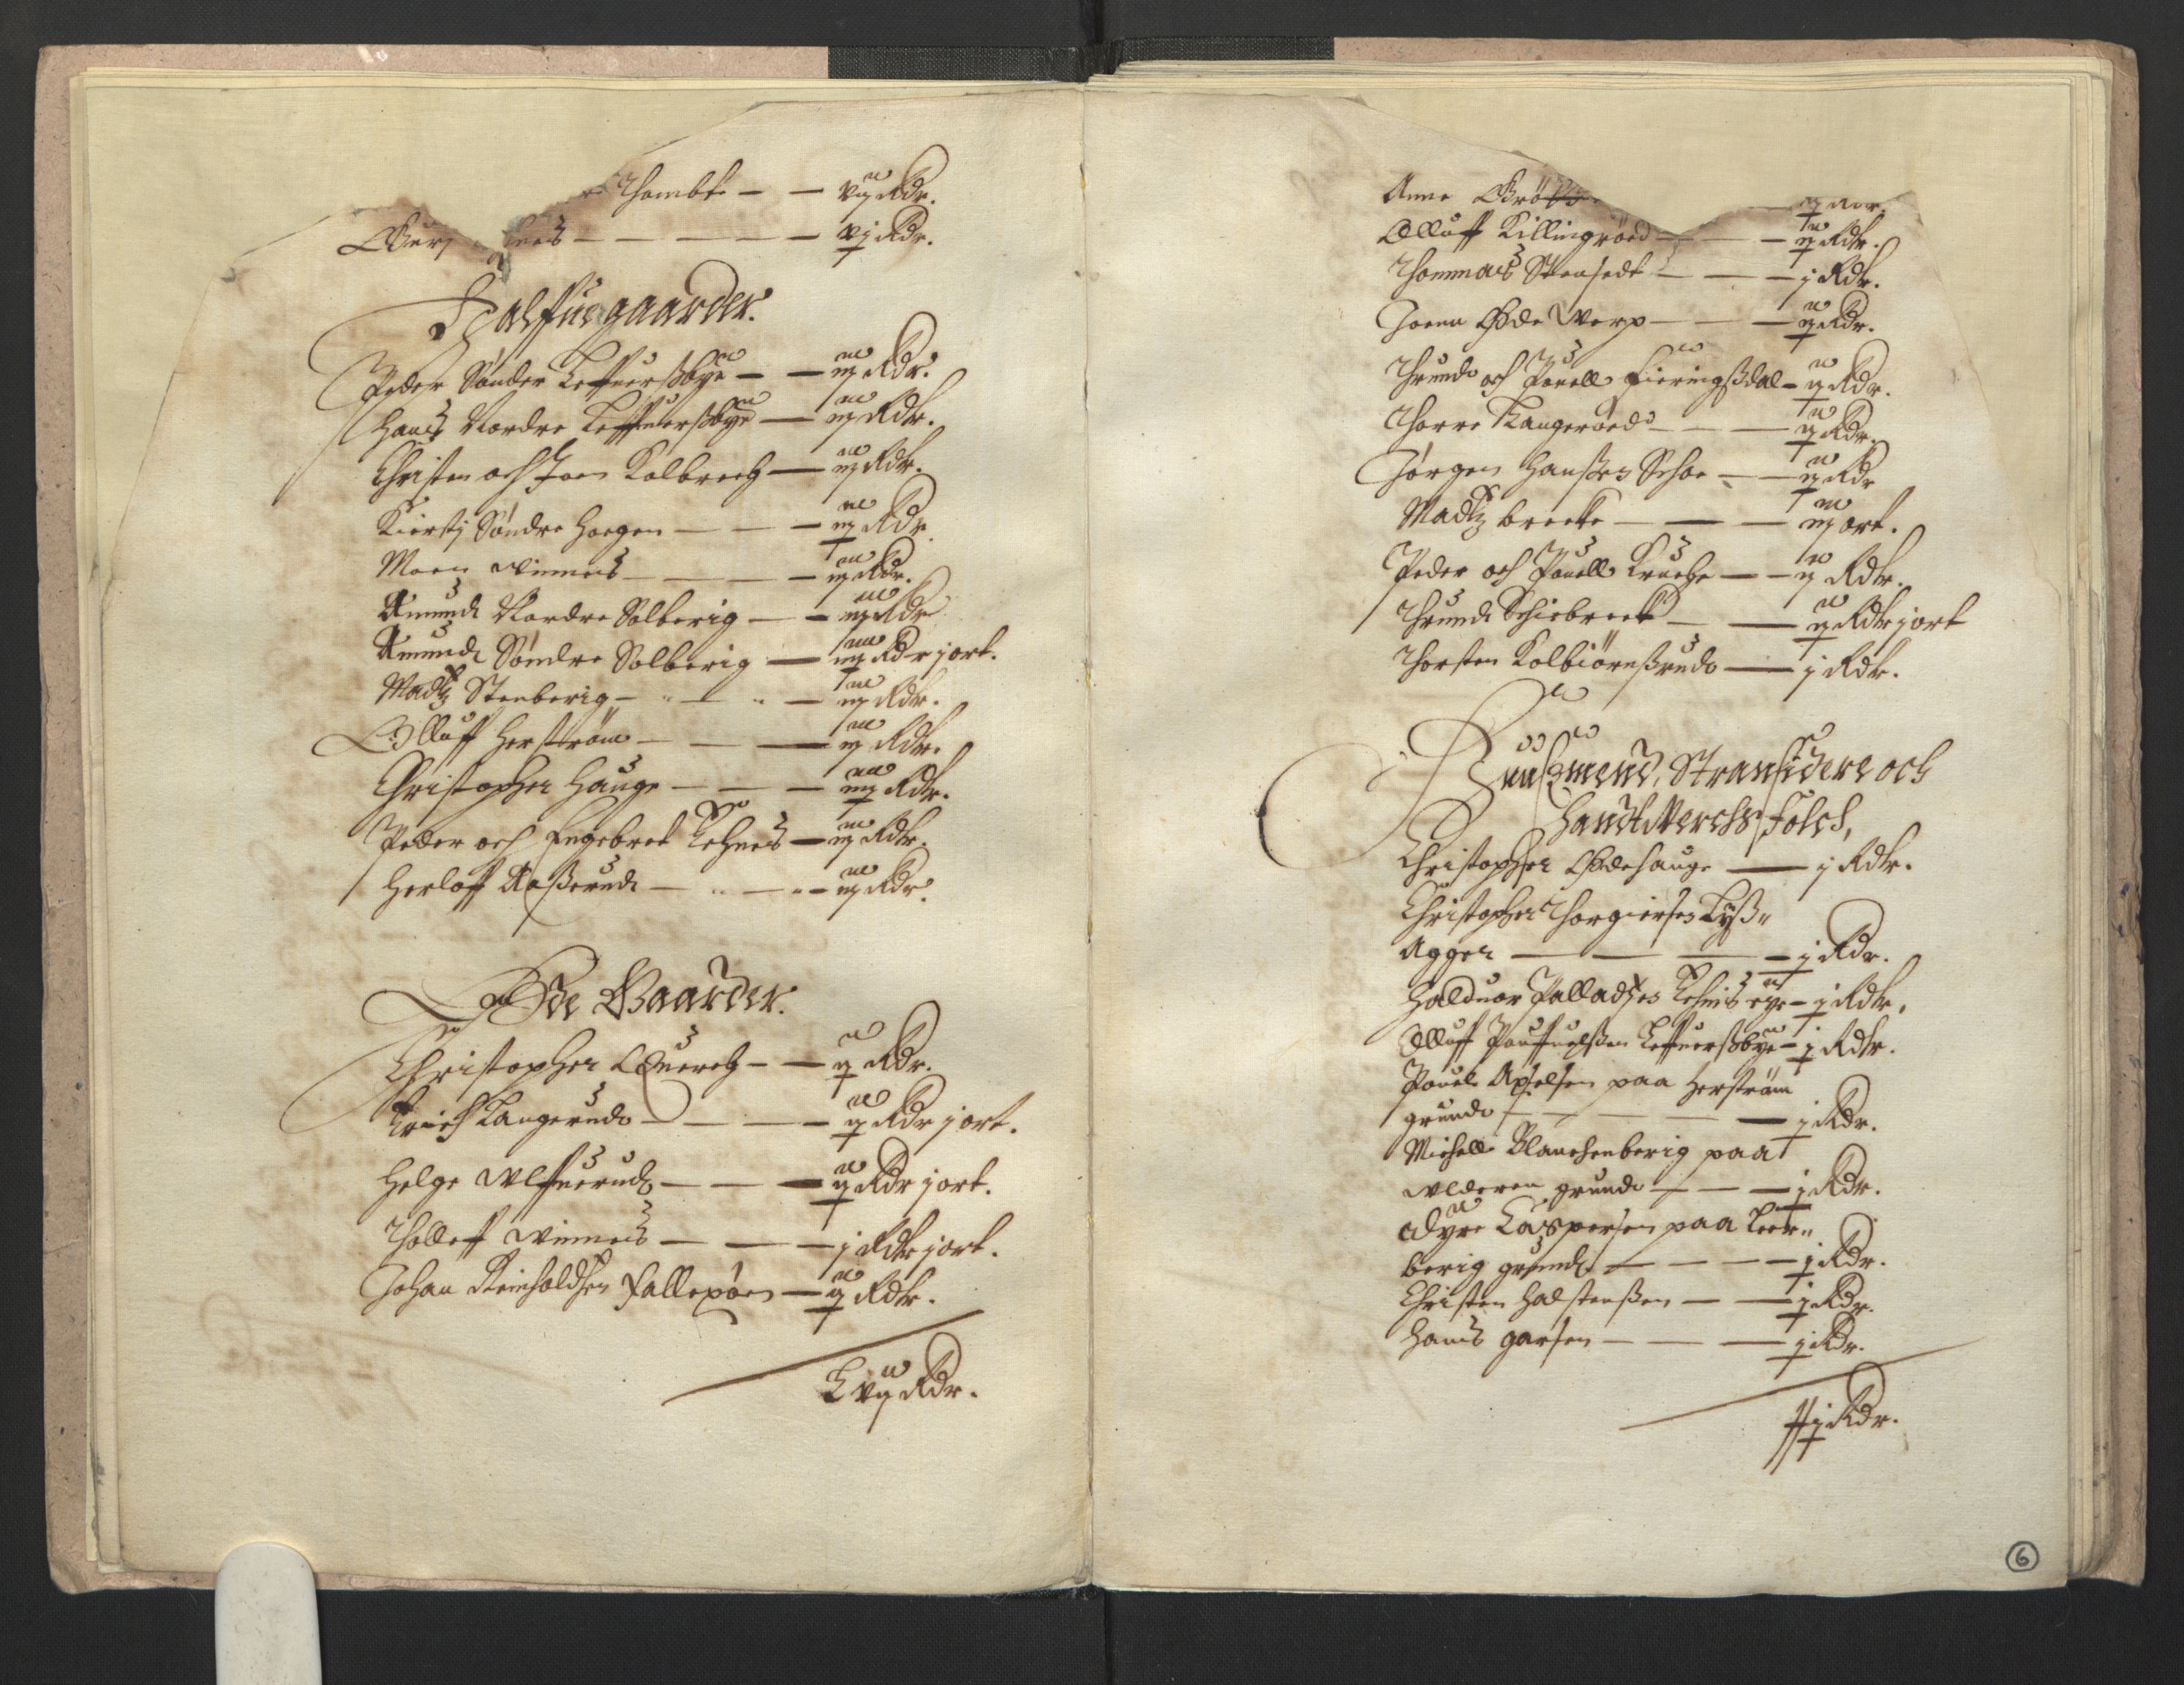 Thombt — — vij Rdr.
Gury nes — — — — vj Rdr.
Halfue gaarder.
Peder Sønder Leffuerßbye — — iij Rdr.
Hans Nordre Leffuerßbye — iij Rdr.
Christen och Joen Kolbrech — iij Rdr.
Kiersti Søndre Hogen — — — iij Rdr
Moen Winnes — — — iij Rdr.
Amundt Nordre Solberig — — iij Rdr
Amundt Søndre Solberig — iij Rdr j ort.
Madtz Stenberig — — — iij Rdr.
Olluff Herstrøm — — — iij Rdr.
Christopher Hauge — — — iij Rdr.
Peder och Engebret Lehnes — iij Rdr.
Herloff Aaßerudt — — — iij Rdr.
Øde Gaarder.
Christopher Querch — — ij Rdr.
Erich Langerudt — — — ij Rdr j ort.
Helge Ulffuerudt — — — ij Rdr j ort.
Tholleff Winnes — — — j Rdr j ort.
Johan Reinholdsen Fallepøen — ij Rdr.
Lvij Rdr.
Anne Grøtte
Olluff Killingrøed — — ij Rdr.
Thommas Stensedt — — — j Rdr.
Joenn Øde Werp — — — ij Rdr.
Thrundt och Pouell Fieringßdal — ij Rdr.
Thorre Kangerøedt — — — ij Rdr.
Jørgen Hanßen Schoe — — ij Rdr
Madtz Brecke — — — iij ort.
Peder och Pouell Kruche — — ij Rdr.
Thrundt Schiebreck — — ij Rdr j ort
Thorsten Kolbiørnßrudt — j Rdr.
Huußmend, Strandsidere och
Handtwerchs Folch,
Christopher Ødehauge — j Rdr.
Christopher Thorgiersen Lyß„
Agger — — — j Rdr.
Halduor Palladsen Lehnis eye — j Rdr.
Olluff Pouffuelßen Leffuerßbye — j Rdr.
Pouel Axelsen paa Herstrøm
grundt — — — j Rdr.
Michell Blanchenberig paa
Wlderen grundt — — — j Rdr.
Dyre Caspersen paa Leer„
berig grundt — — — j Rdr.
Christen Halstenßen — — j Rdr.
Hans Garsen — — — j Rdr.
j Rdr.
6